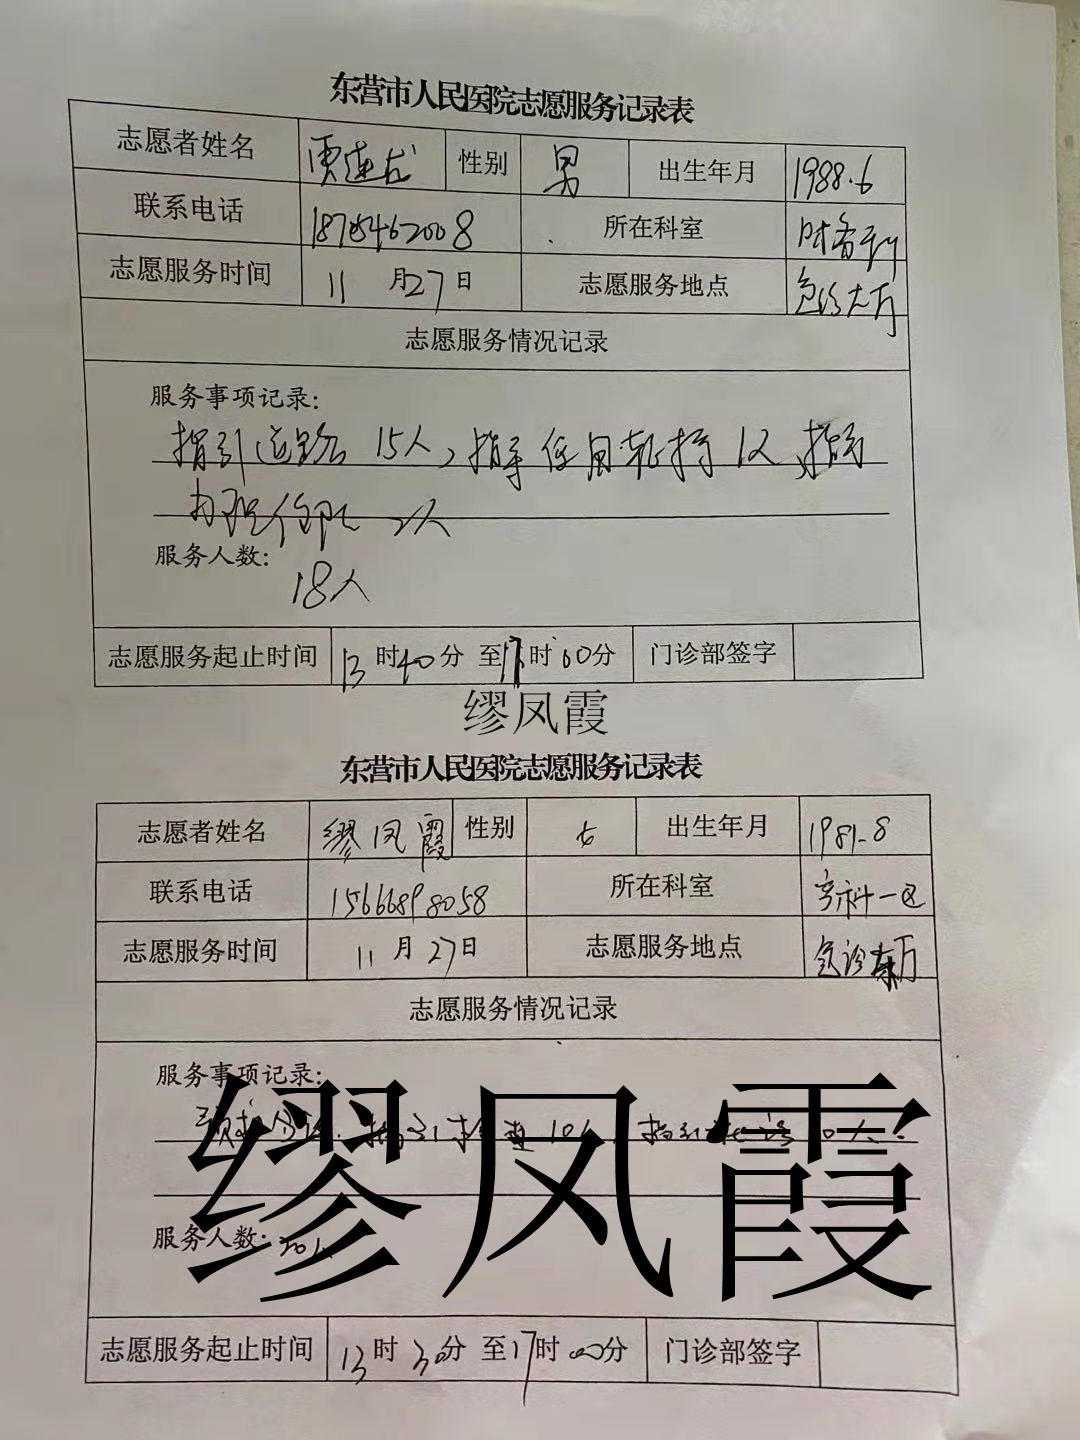 东营市人民医院志愿服务记录表
志愿者姓名 贾连龙 性别 男 出生年月 1988.6
联系电话 18754662008 所在科室 财务科
志愿服务时间 11月27日 志愿服务地点 急诊大厅
志愿服务情况记录
服务事项记录:
指引道路 15人,指导使用轮椅 1人,指导
办理住院 2人
服务人数:
18人
志愿服务起止时间 13时40分 至17时00分 门诊部签字
缪凤霞
东营市人民医院志愿服务记录表
志愿者姓名 缪凤霞 性别 女 出生年月 1981-8
联系电话 15666898058 所在科室 一区
志愿服务时间 11月27日 志愿服务地点 急诊大厅
志愿服务情况记录
服务事项记录:
预检分诊 指引检查 10人
缪凤霞
服务人数: 20人
志愿服务起止时间 13时30分 至17时00分 门诊部签字